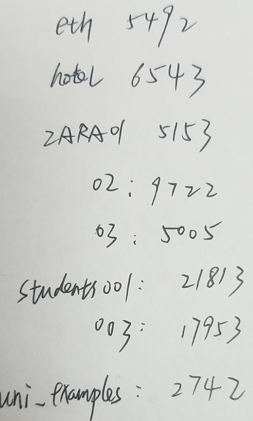 eth 5492
hotel 6543
ZARA01 5153
02: 9722
03: 5005
students001: 21813
003: 17953
uni_examples: 2742